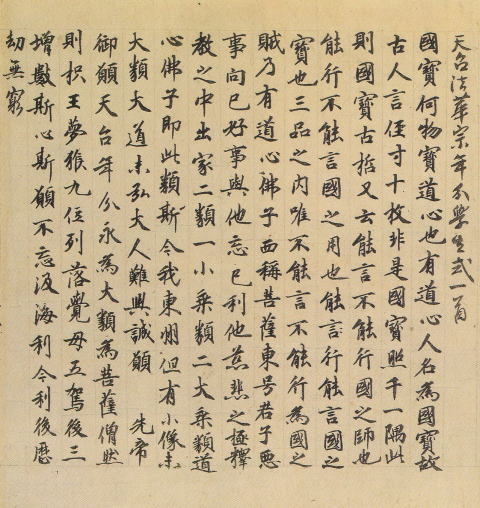 天台法華宗年分學生式一首
國寶何物寶道心也有道心人名為國寶故
古人言徑寸十枚非是國寶照千一隅此
則國寶古哲又云能言不能行國之師也
能行不能言國之用也能言行能言國之
寶也三品之內唯不能言不能行為國之
賊乃有道心佛子西稱菩薩東号君子惡
事向己好事與他忘己利他慈悲之極釋
教之中出家二類一小乘類二大乘類道
心佛子即此類斯今我東州但有小像未
大類大道未弘大人難興誠願 先帝
御願天台年分永為大類為菩薩僧然
則枳王夢猴九位列落覺母五駕後三
增數斯心斯願不忘汲海利今利後歷
劫無窮